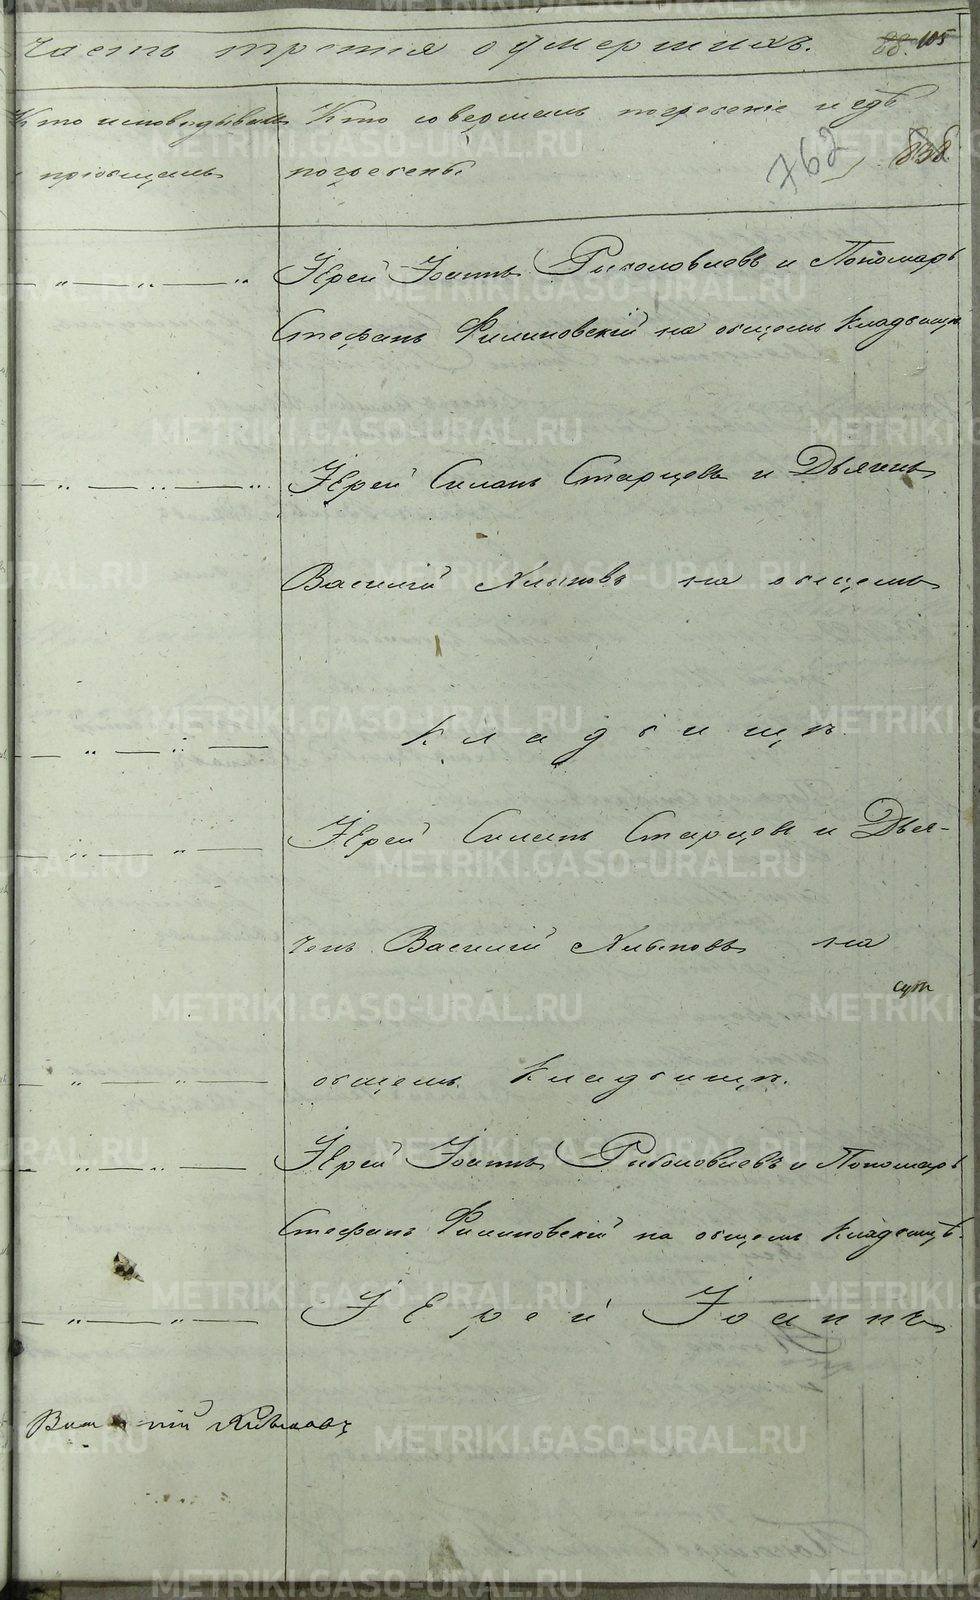 Часть третия о умерших. 88. 105
Кто исповедывалъ Кто совершалъ погребенiе и гдѣ
и прiобщалъ погребены.
762 838
Iерей Iоаннъ и Пономарь
Стефанъ Филиповскiй на общемъ кладбищѣ
Iерей Силанъ Старцевъ и Дьячекъ
Василiй Хлыновъ на общемъ
кладбищѣ
Iерей Силанъ Старцевъ и Дья-
чекъ Василiй Хлыновъ на
общемъ кладбищѣ.
Iерей Iоаннъ и Пономарь
Стефанъ Филиповскiй на общемъ кладбищѣ.
Iерей Iоаннъ
METRIKI.GASO-URAL.RU